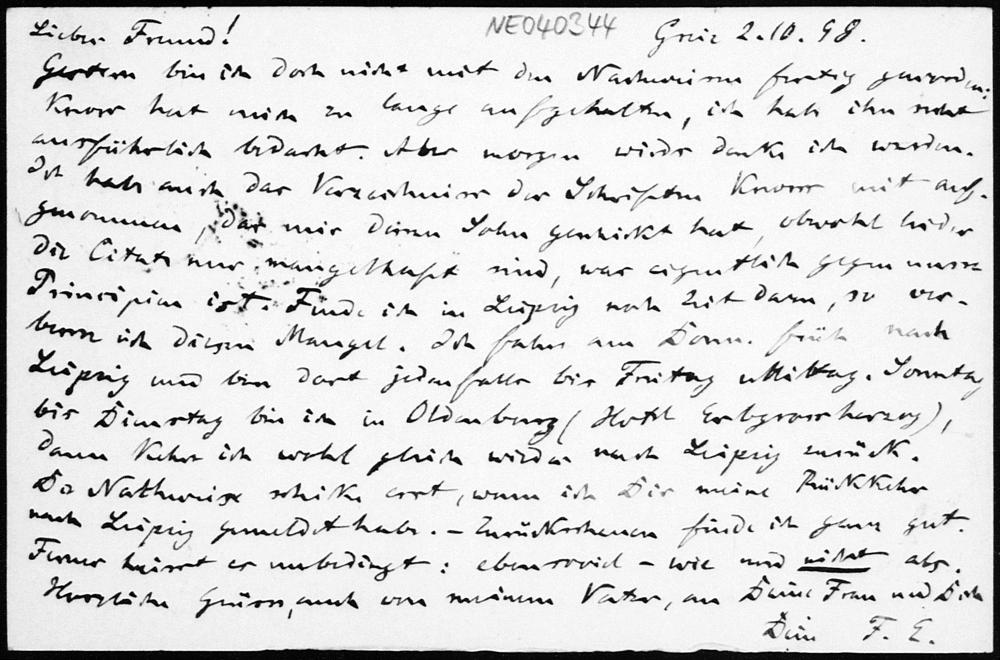 Lieber Freund! NE040344 Greiz 2.10.98.
Gestern bin ich doch nicht mit den Nachweisen fertig geworden:
Knorr hat mich zu lange aufgehalten, ich hab ihn recht
ausführlich bedacht. Aber morgen wieder denke ich werden.
Ich habe auch das Verzeichniss der Schriften Knorrs mit auf-
genommen, das mir dessen Sohn geschickt hat, obwohl leider
die Citate nur mangelhaft sind, was eigentlich gegen unsere
Principien ist. Finde ich in Leipzig noch Zeit dazu, so ver-
bessre ich diesen Mangel. Ich fahre am Donn. früh nach
Leipzig und bin dort jedenfalls bis Freitag Mittag. Sonntag
bis Dienstag bin ich in Oldenburg (Hotel Erbgrossherzog),
dann kehre ich wohl gleich wieder nach Leipzig zurück.
Die Nachweise schicke erst, wenn ich Dir meine Rückkehr
nach Leipzig gemeldet habe. – Zurückschauen finde ich ganz gut.
Ferner heisst es unbedingt: ebensoviel – wie und nicht als.
Herzliche Grüsse, auch von meinem Vater, an Deine Frau und Dich
Dein F. E.